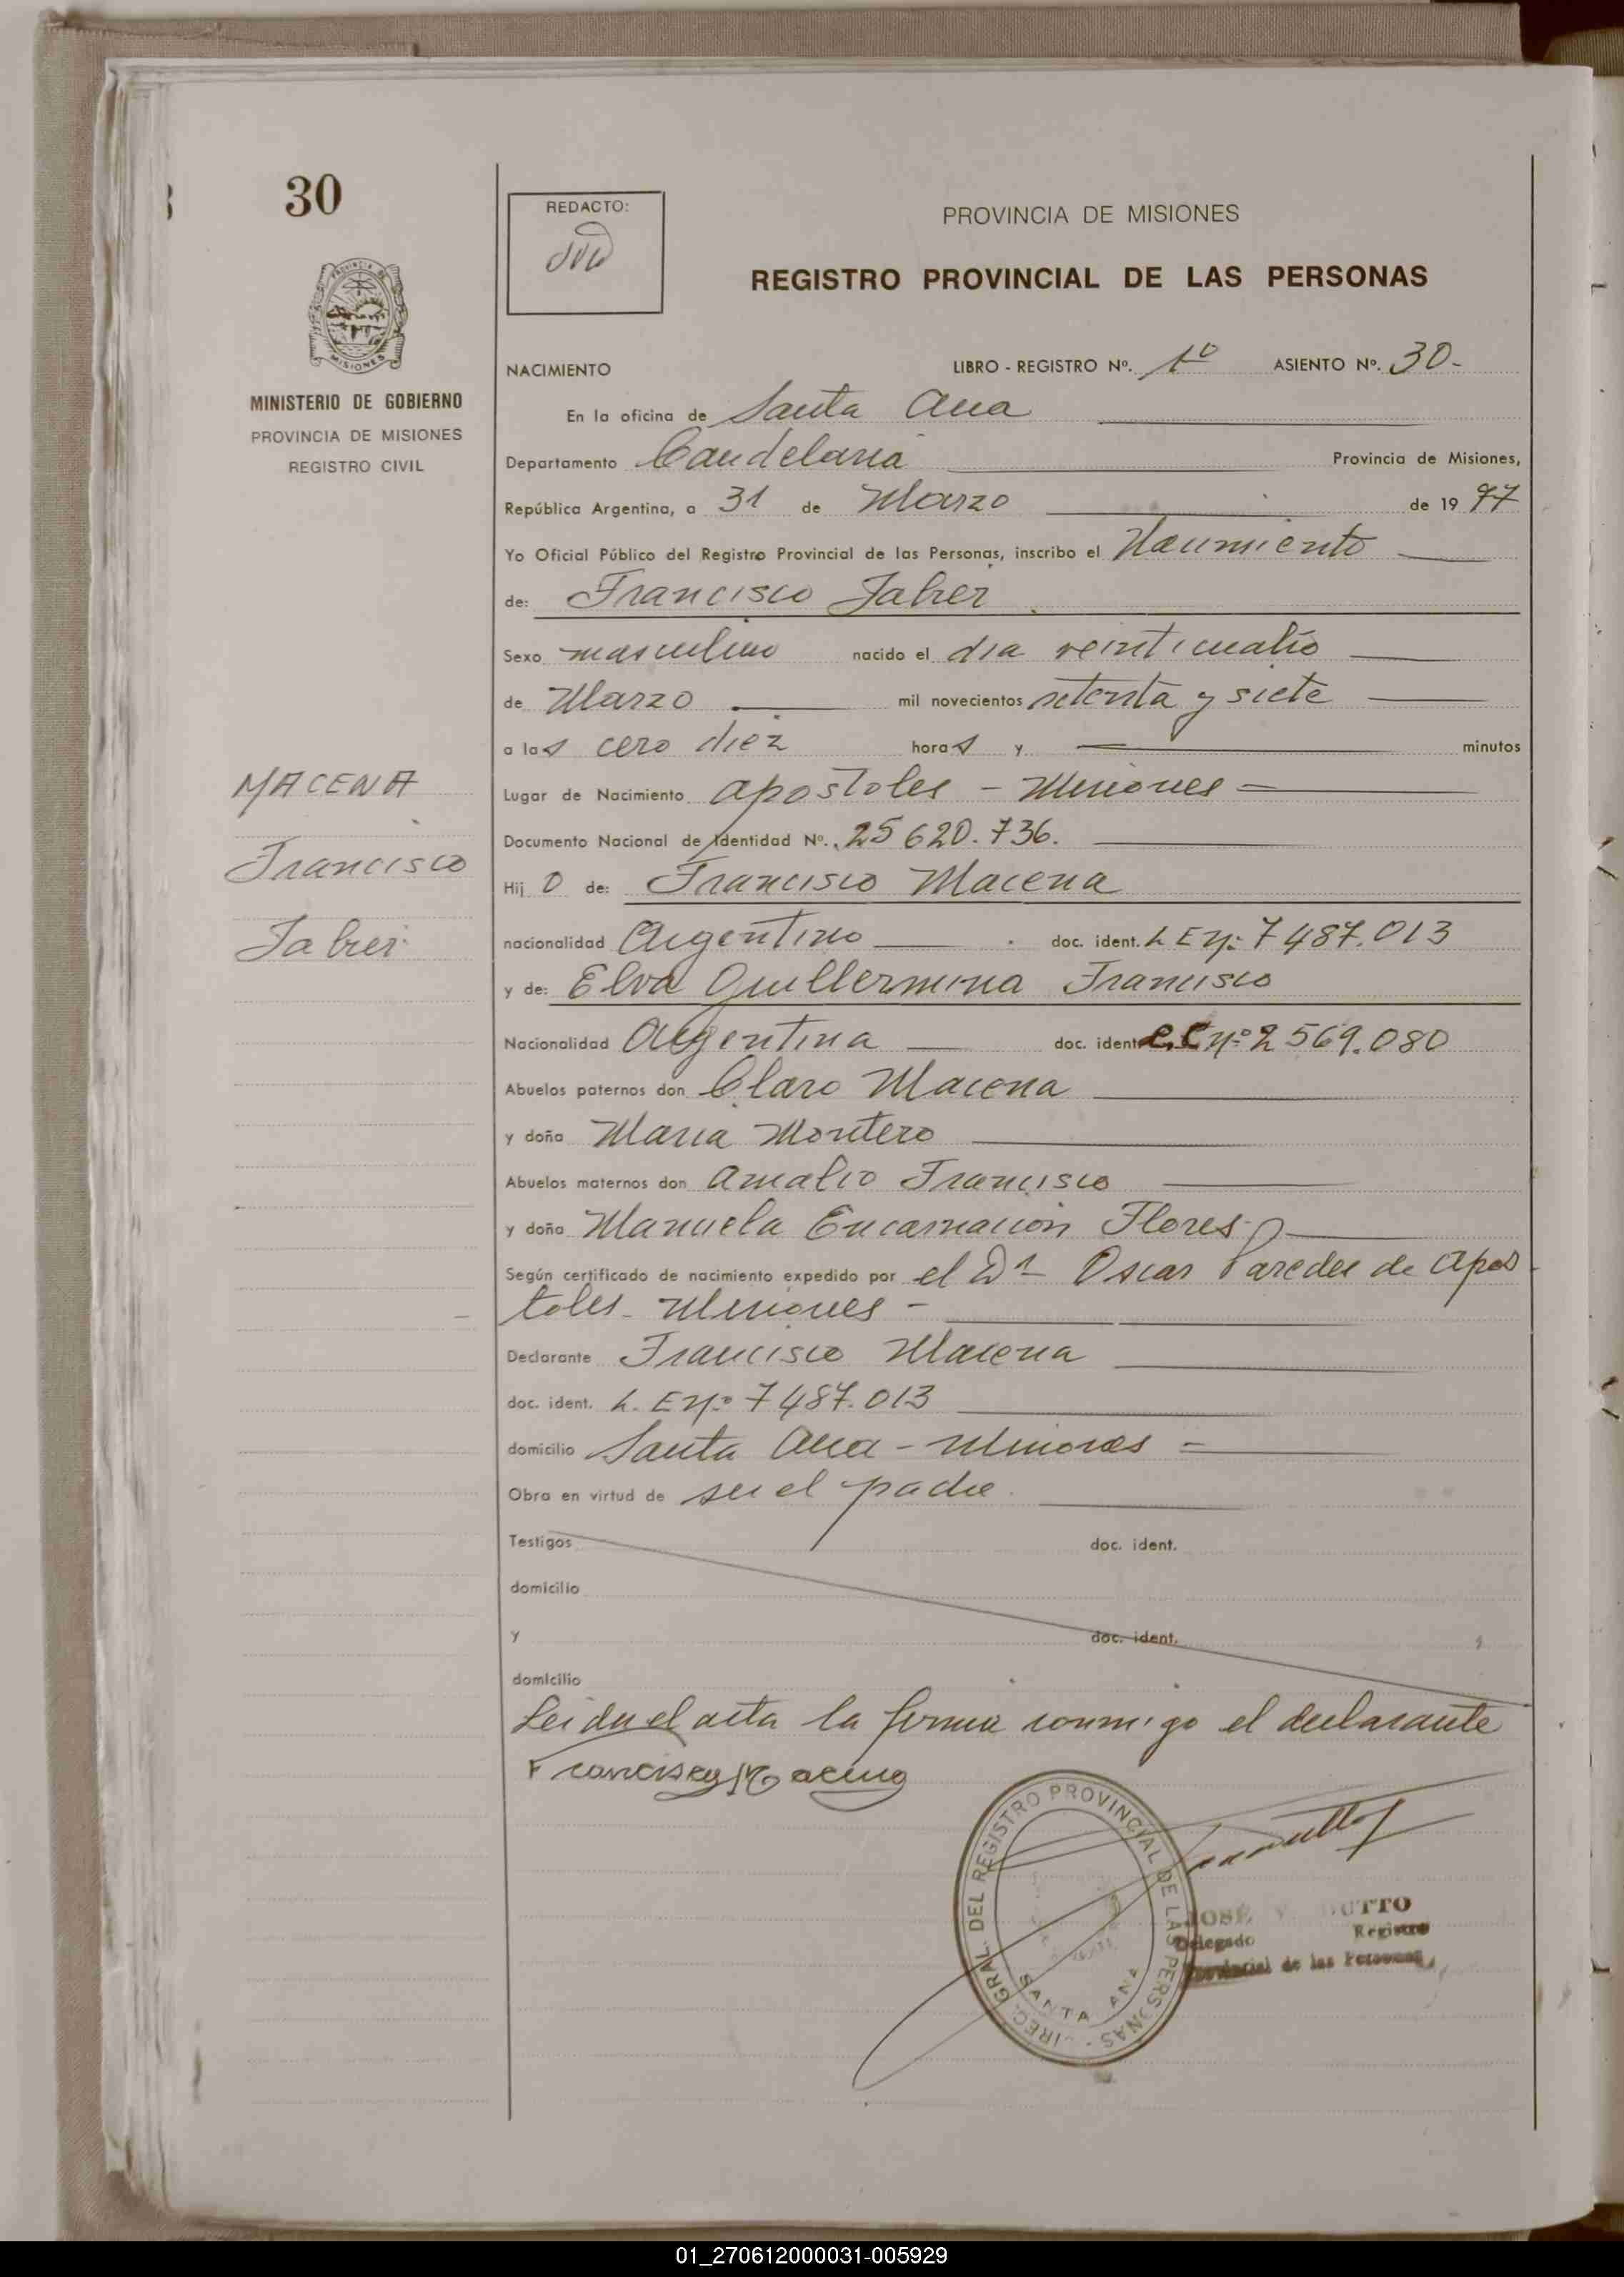 30
REDACTO:
PROVINCIA DE MISIONES
REGISTRO PROVINCIAL DE LAS PERSONAS
MISIONES
MINISTERIO DE GOBIERNO
PROVINCIA DE MISIONES
REGISTRO CIVIL
NACIMIENTO LIBRO - REGISTRO Nº. 1º ASIENTO Nº. 30-
En la oficina de Santa Ana
Departamento Candelaria Provincia de Misiones,
República Argentina, a 31 de Marzo de 19 77
Yo Oficial Público del Registro Provincial de las Personas, inscribo el Nacimiento
de: Francisco Jabier
Sexo masculino nacido el dia veinticuatro
de Marzo mil novecientos setenta y siete
a las cero diez horas y minutos
Lugar de Nacimiento Apostoles - Misiones
Documento Nacional de Identidad Nº. 25620.736.
Hij o de: Francisco Macena
nacionalidad Argentino doc. ident. L E Nº 7487.013
y de: Elva Guillermina Francisco
Nacionalidad Argentina doc. ident. C.C Nº 2569.080
Abuelos paternos don Claro Macena
y doña Maria Montero
Abuelos maternos don Amalio Francisco
y doña Manuela Encarnacion Flores
Según certificado de nacimiento expedido por el Dr Oscar Paredes de Apos
toles - Misiones -
Declarante Francisco Macena
doc. ident. L. E Nº 7487.013
domicilio Santa Ana - Misiones
Obra en virtud de ser el padre.
Testigos doc. ident.
domicilio
y doc. ident.
domicilio
Leida el acta la firma conmigo el declarante
Francisco Macena
MACENA
Francisco
Jabier
GRAL. DEL REGISTRO PROVINCIAL DE LAS PERSONAS
SANTA ANA
JOSE
Delegado Registro
Provincial de las Personas
01_270612000031-005929